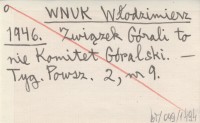 WNUK Włodzimierz
1946. Związek Górali to
nie Komitet Góralski. —
Tyg. Powsz. 2, nr 9.